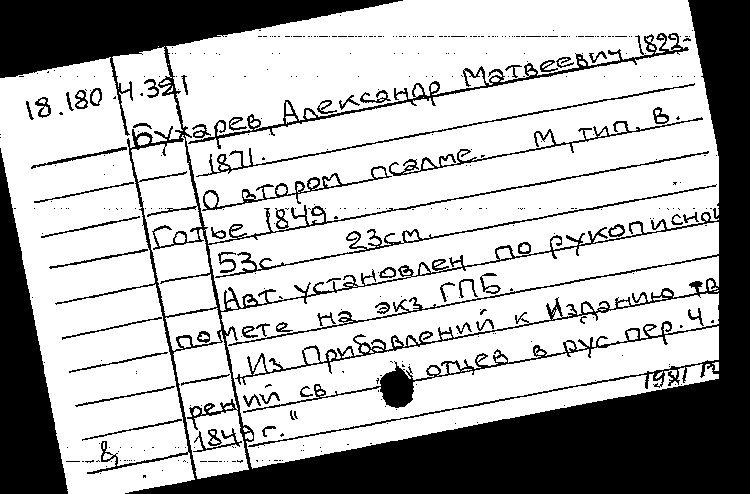 18.180.4.321
Бухарев, Александр Матвеевич, 1822-
1871.
О втором псалме. М, тип. В.
Готье, 1849.
53с. 23см.
Авт. установлен по рукописной
помете на экз. ГПБ.
„Из Прибавлений к Изданию тв
рений св. отцев в рус. пер. Ч.
1849 г."
1981